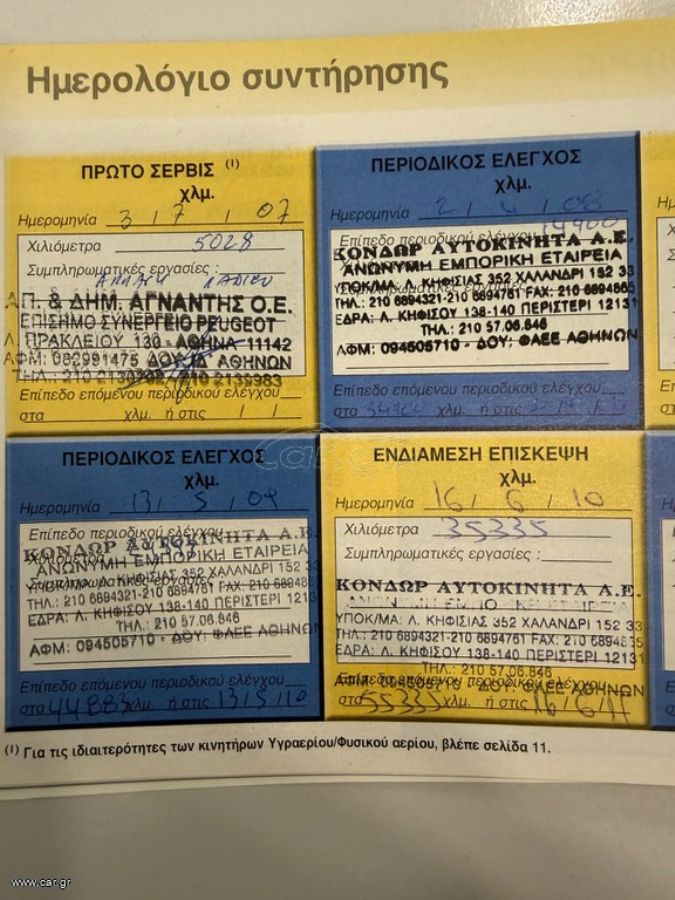 Ημερολόγιο συντήρησης
ΠΡΩΤΟ ΣΕΡΒΙΣ (1)
χλμ.
Ημερομηνία 3 / 7 / 07
Χιλιόμετρα 5028
Συμπληρωματικές εργασίες :
ΑΠ. & ΔΗΜ. ΑΓΝΑΝΤΗΣ Ο.Ε.
ΕΠΙΣΗΜΟ ΣΥΝΕΡΓΕΙΟ PEUGEOT
Λ. ΗΡΑΚΛΕΙΟΥ 130 - ΑΘΗΝΑ 11142
ΑΦΜ: 082991475 ΔΟΥ: ΙΔ' ΑΘΗΝΩΝ
ΤΗΛ.: 210
Επίπεδο επόμενου περιοδικού ελέγχου
στα χλμ. ή στις / /
ΠΕΡΙΟΔΙΚΟΣ ΕΛΕΓΧΟΣ
χλμ.
Ημερομηνία 21 / 4 / 08
Επίπεδο περιοδικού ελέγχου
ΚΟΝΔΩΡ ΑΥΤΟΚΙΝΗΤΑ Α.Ε.
ΑΝΩΝΥΜΗ ΕΜΠΟΡΙΚΗ ΕΤΑΙΡΕΙΑ
ΥΠΟΚ/ΜΑ: Λ. ΚΗΦΙΣΙΑΣ 352 ΧΑΛΑΝΔΡΙ 152 33
ΤΗΛ.: 210 6894321-210 6894761 FAX: 210 6894865
ΕΔΡΑ: Λ. ΚΗΦΙΣΟΥ 138-140 ΠΕΡΙΣΤΕΡΙ 12131
ΤΗΛ.: 210 57.06.646
ΑΦΜ: 094505710 - ΔΟΥ: ΦΑΕΕ ΑΘΗΝΩΝ
Επίπεδο επόμενου περιοδικού ελέγχου
στα χλμ. ή στις
ΠΕΡΙΟΔΙΚΟΣ ΕΛΕΓΧΟΣ
χλμ.
Ημερομηνία 13 / 5 / 09
Επίπεδο περιοδικού ελέγχου
ΚΟΝΔΩΡ ΑΥΤΟΚΙΝΗΤΑ Α.Ε.
ΑΝΩΝΥΜΗ ΕΜΠΟΡΙΚΗ ΕΤΑΙΡΕΙΑ
ΥΠΟΚ/ΜΑ: Λ. ΚΗΦΙΣΙΑΣ 352 ΧΑΛΑΝΔΡΙ 152 33
ΤΗΛ.: 210 6894321-210 6894761 FAX: 210 6894865
ΕΔΡΑ: Λ. ΚΗΦΙΣΟΥ 138-140 ΠΕΡΙΣΤΕΡΙ 12131
ΤΗΛ.: 210 57.06.646
ΑΦΜ: 094505710 - ΔΟΥ: ΦΑΕΕ ΑΘΗΝΩΝ
Επίπεδο επόμενου περιοδικού ελέγχου
στα 44883 χλμ. ή στις 13 / 5 / 10
ΕΝΔΙΑΜΕΣΗ ΕΠΙΣΚΕΨΗ
χλμ.
Ημερομηνία 16 / 6 / 10
Χιλιόμετρα 35335
Συμπληρωματικές εργασίες :
ΚΟΝΔΩΡ ΑΥΤΟΚΙΝΗΤΑ Α.Ε.
ΥΠΟΚ/ΜΑ: Λ. ΚΗΦΙΣΙΑΣ 352 ΧΑΛΑΝΔΡΙ 152 33
ΤΗΛ.: 210 6894321-210 6894761 FAX: 210 6894865
ΕΔΡΑ: Λ. ΚΗΦΙΣΟΥ 138-140 ΠΕΡΙΣΤΕΡΙ 12131
ΤΗΛ.: 210 57.06.646
ΑΦΜ: 094505710 - ΔΟΥ: ΦΑΕΕ ΑΘΗΝΩΝ
Επίπεδο επόμενου περιοδικού ελέγχου
στα 55335 χλμ. ή στις 16 / 6 / 11
(1) Για τις ιδιαιτερότητες των κινητήρων Υγραερίου/Φυσικού αερίου, βλέπε σελίδα 11.
www.car.gr